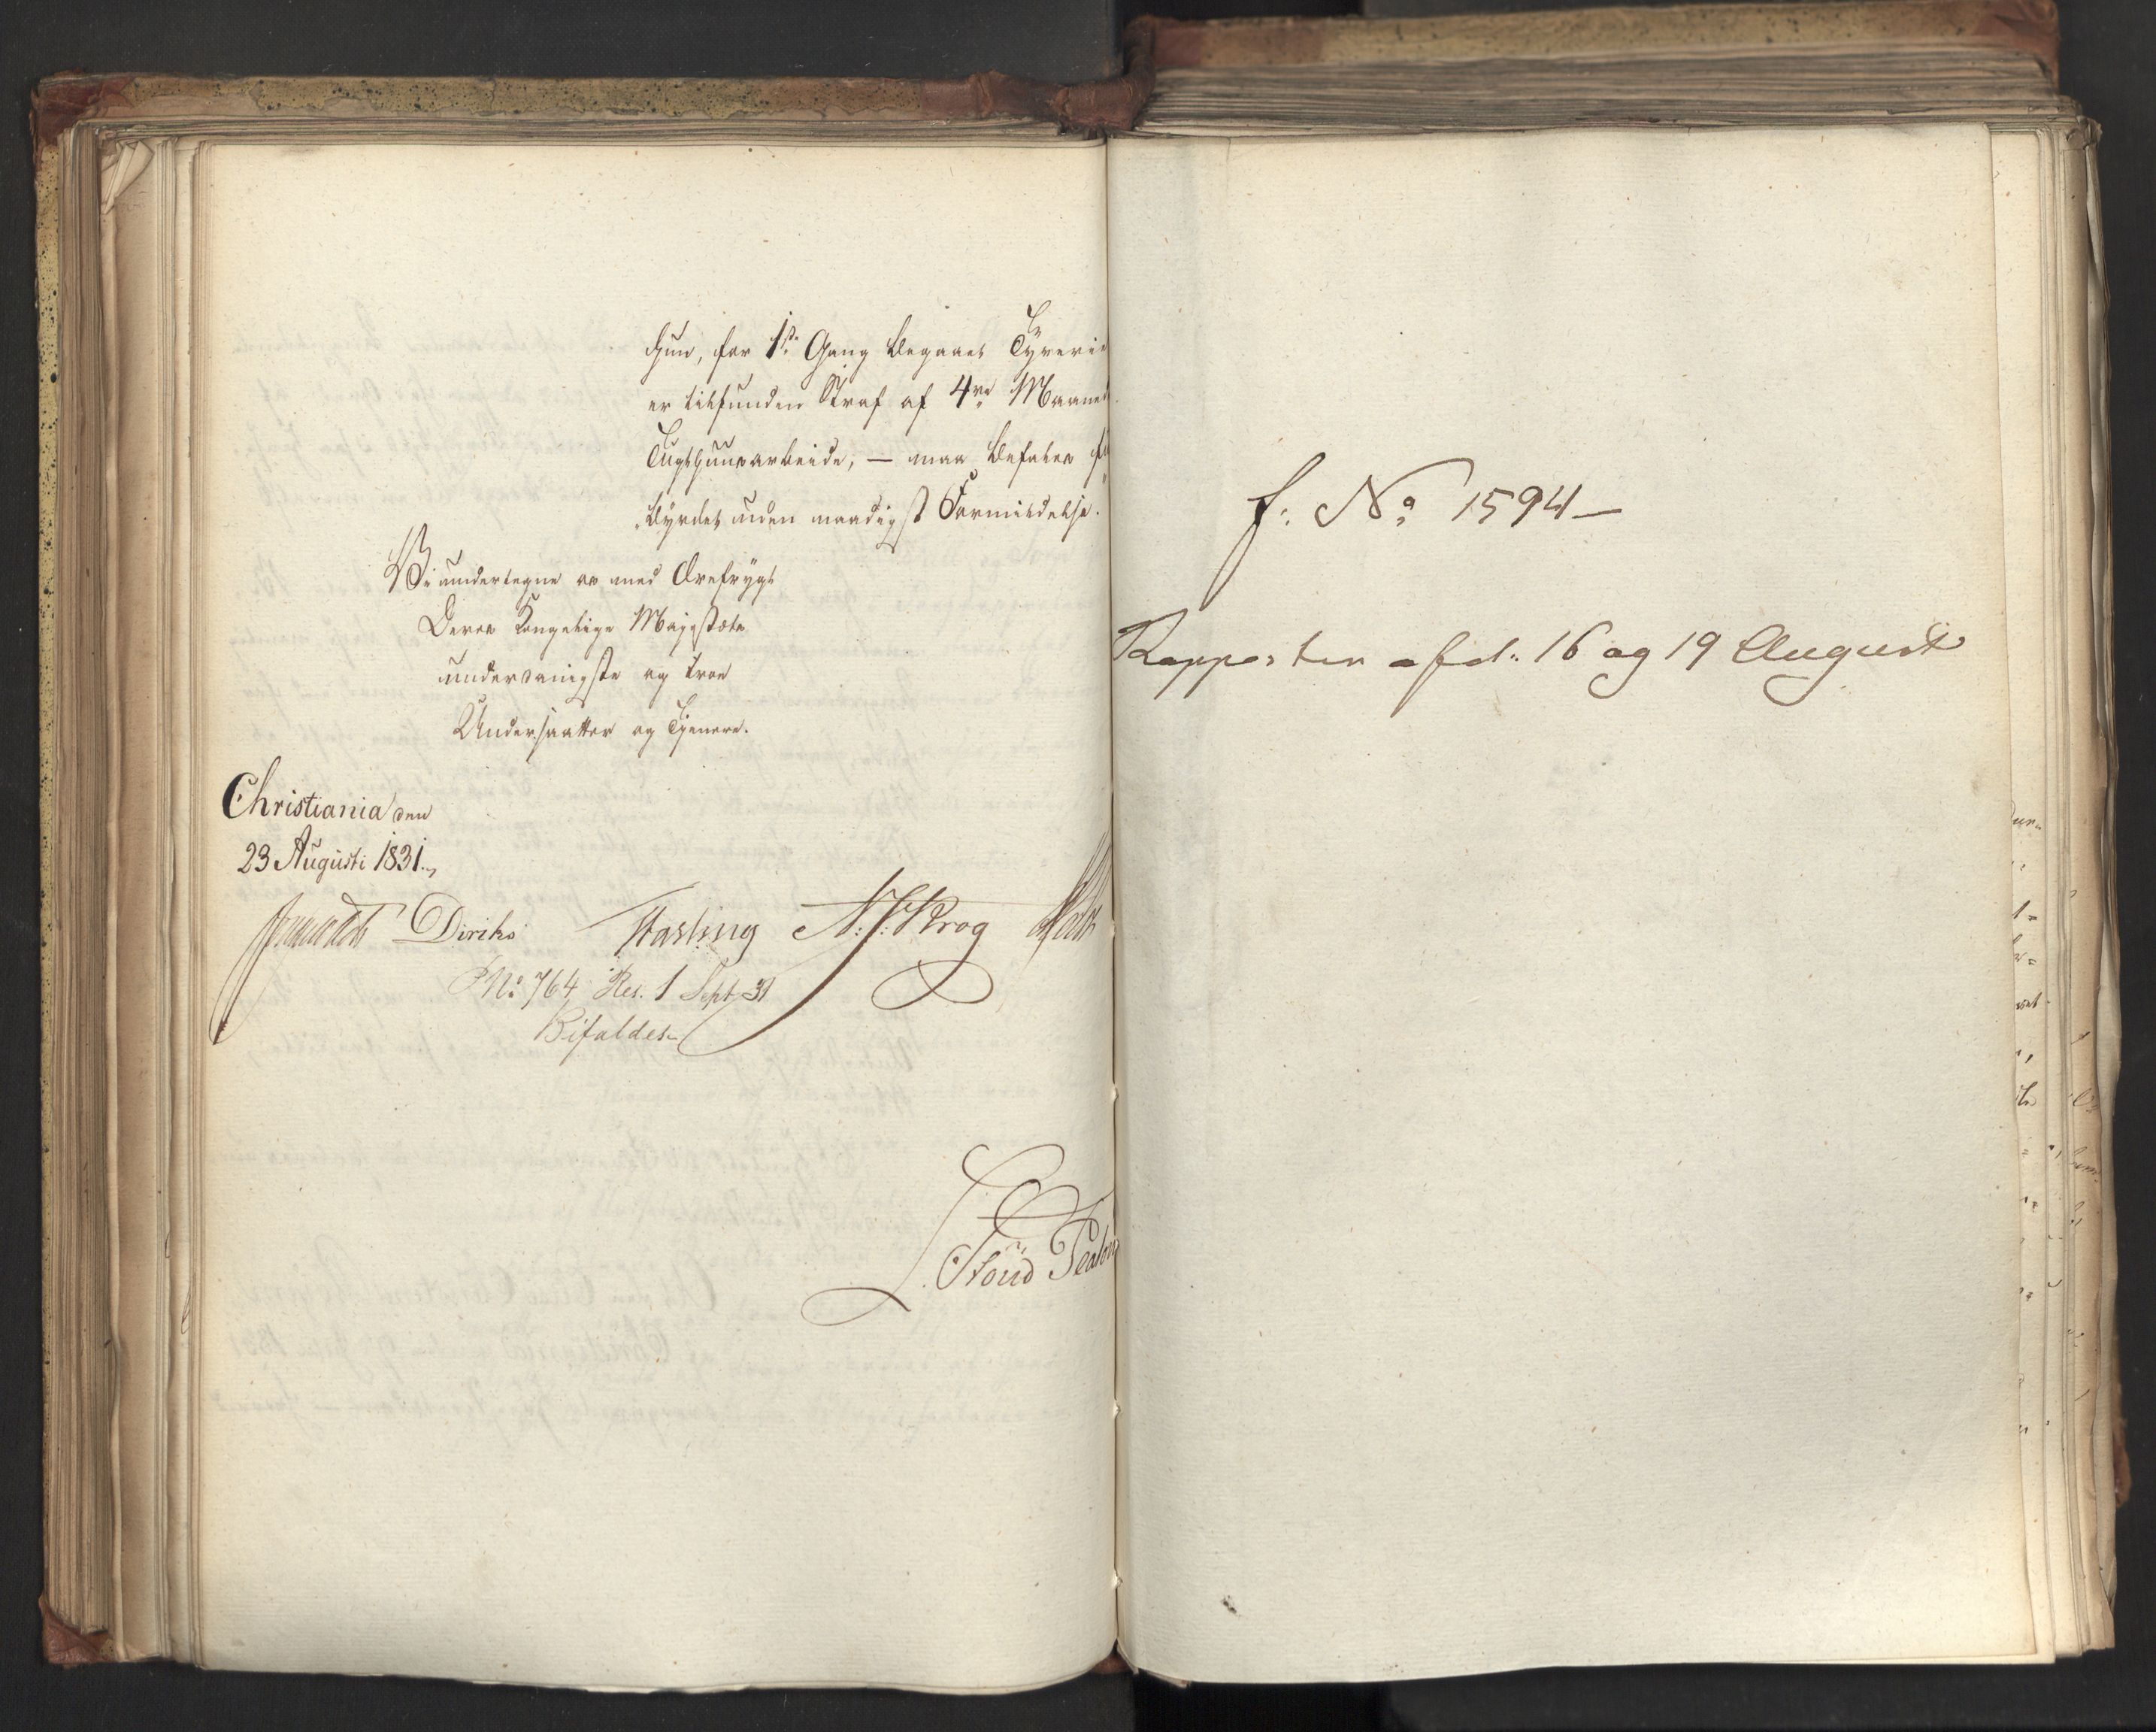 hun, for 1ste Gang begaaet Tyverie
er tilfunden Straf af 4re Maaned
Tugthuusarbeide, — maa befales
byrdet uden naadigst Formildelse.
Vi undertegne os med Ærefrygt
Deres Kongelige Majestæts
underdanigste og troe
Undersaatter og Tjenere.
Christiania den
23 Augusti 1831.,
Diriks Fasting N. J. Krog
No 764 Res. 1 Sept 31
Bifaldes.
f: No 1594 –
Rapporten af d: 16 og 19 August